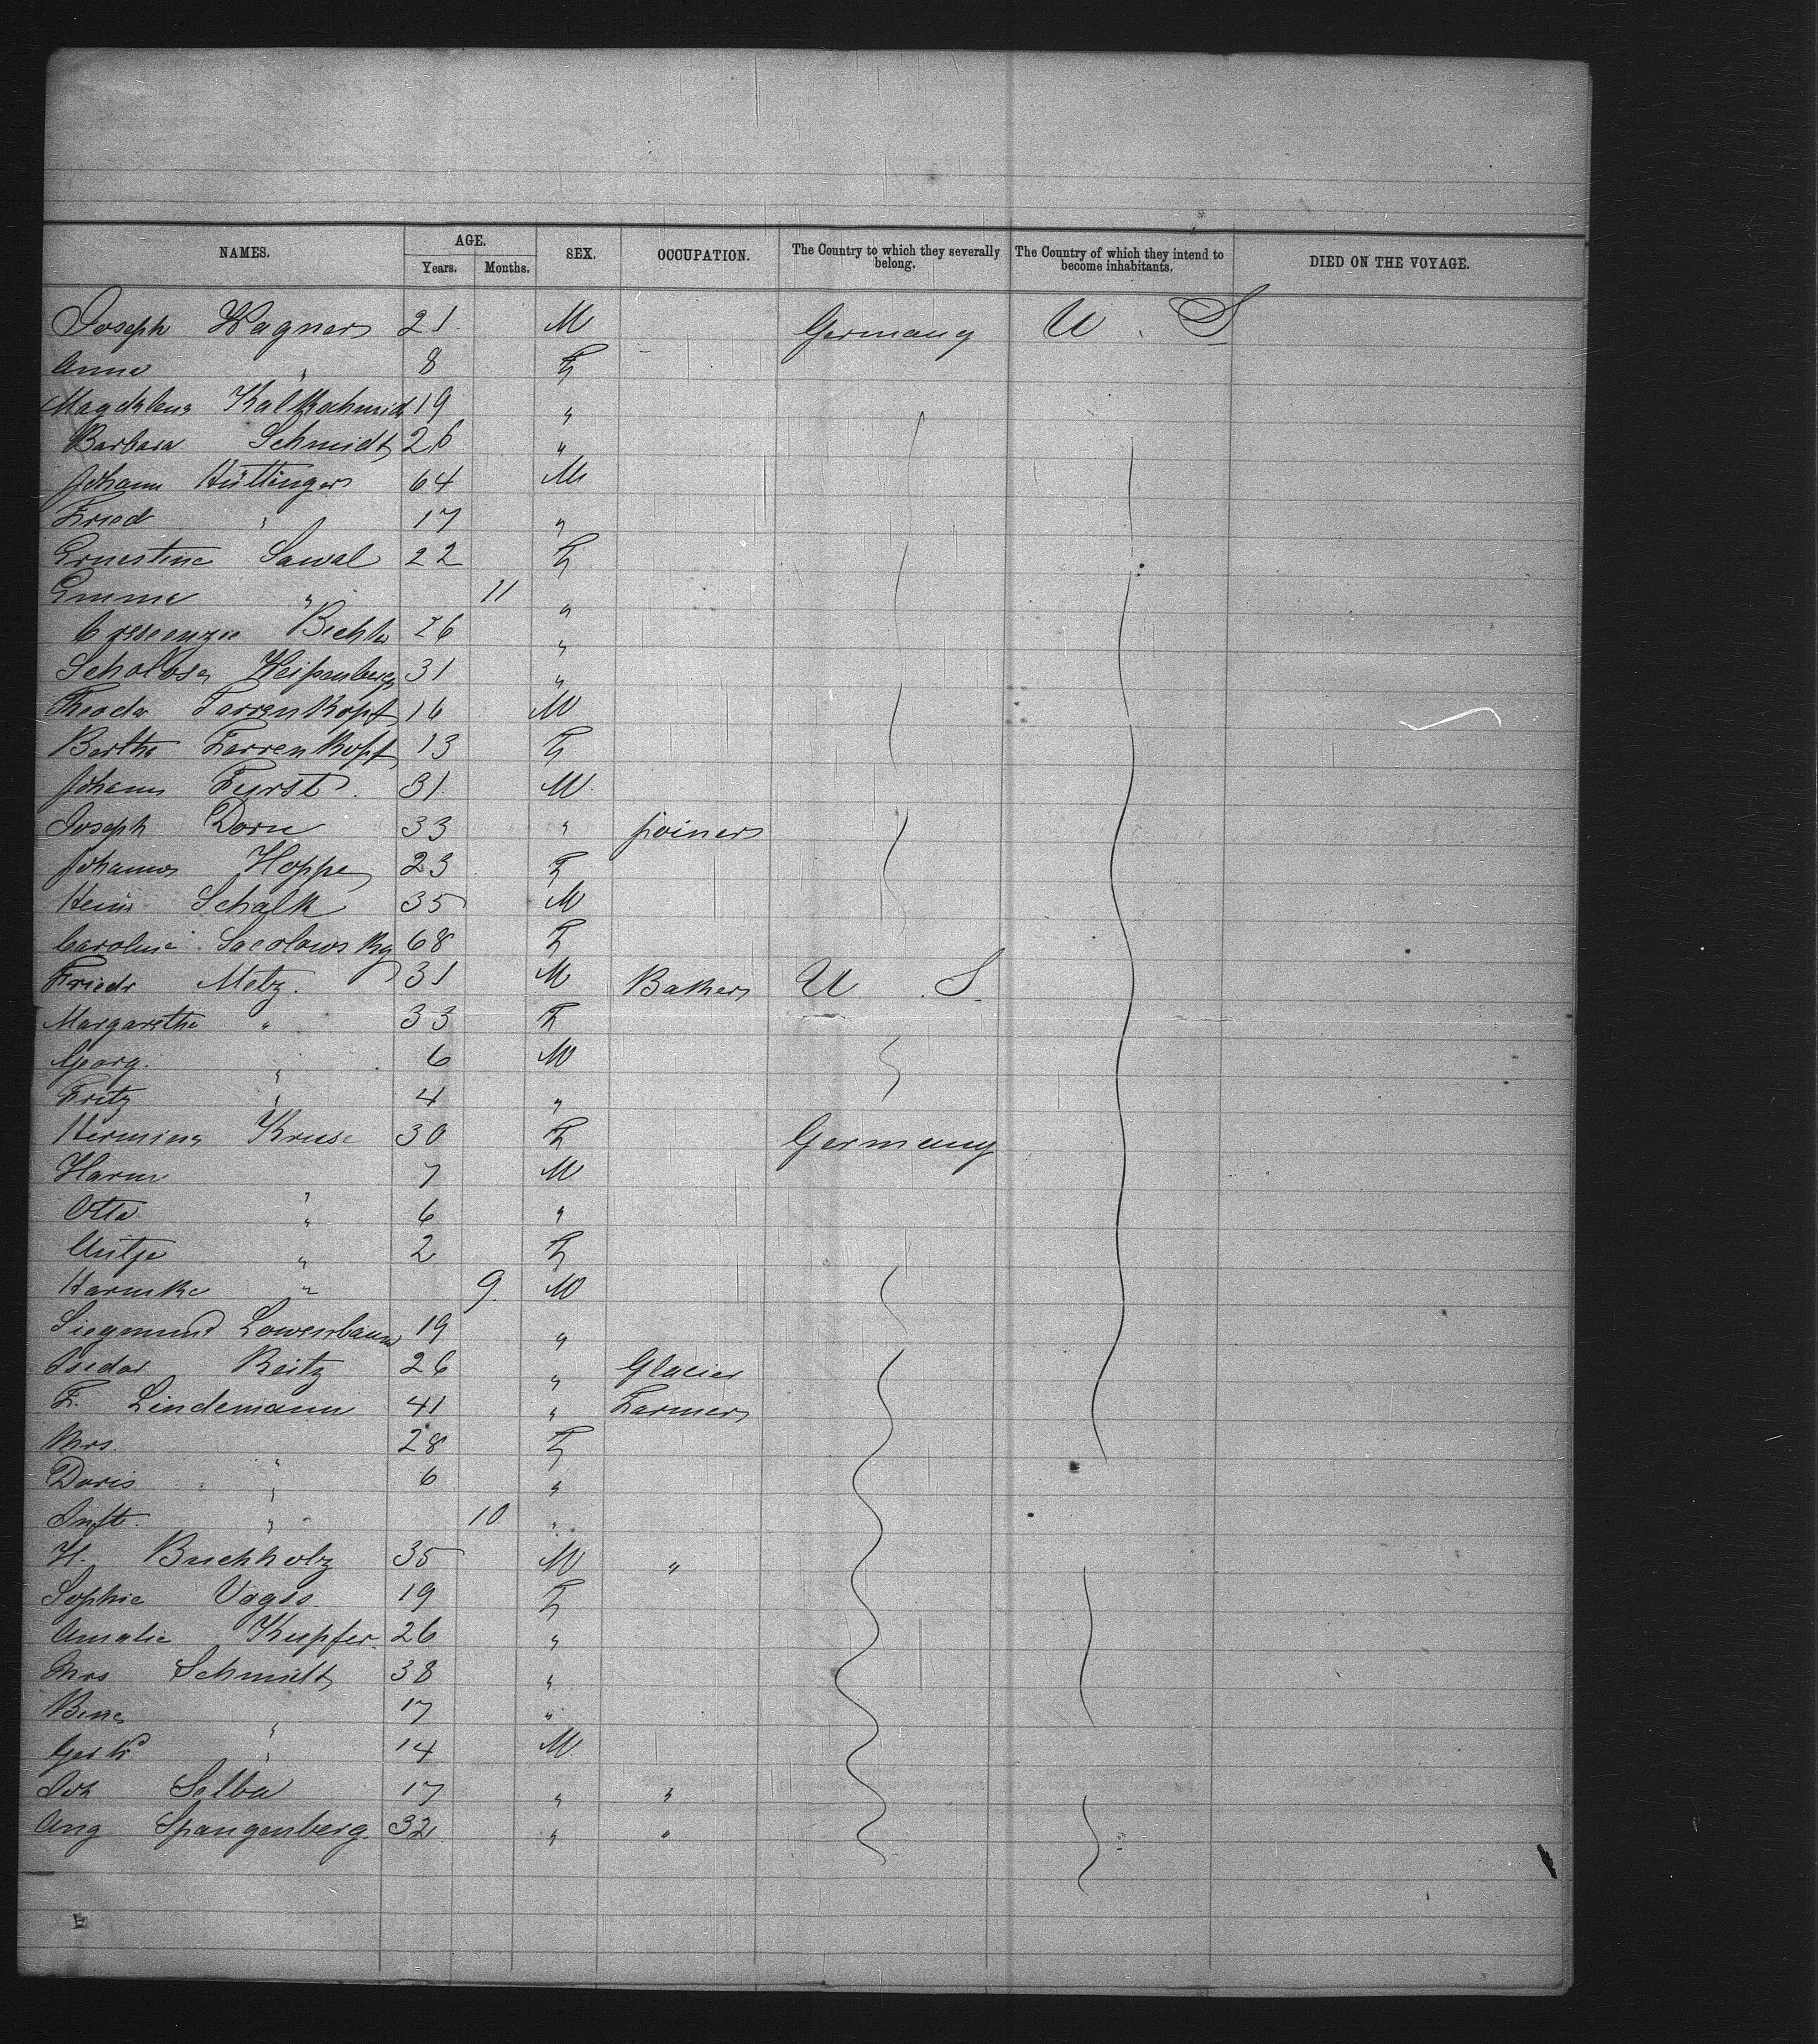 NAMES. AGE. SEX. OCCUPATION. The Country to which they severally belong. The Country of which they intend to become inhabitants. DIED ON THE VOYAGE.
Years. Months.
Joseph Wagner 21 M Germany U. S
Anna " 8 F
Magdalena Kalkschmidt 19 "
Barbara Schmidt 26 "
Johann Hüttinger 64 M
Fried " 17 "
Ernestine Sawal 22 F
Emma " 11 "
Crescenzie Bichler 26 "
Weissenberg 31 "
Theodor Farrenkopf 16 M
Bertha Farrenkopf 13 F
Johann Fürst 31 M
Joseph Dorn 33 " joiner
Johanna Hoppe 23 F
Heinr Schalk 35 M
Caroline Sacolowsky 68 F
Friedr Metz. 31 M Baker U. S.
Margarethe " 33 F
Georg. " 6 M
Fritz " 4 "
Hermina Kruse 30 F Germany
Harm " 7 M
Otto " 6 "
Antje " 2 F
Harmke " 9 M
Siegmund Lowenbaum 19 "
Isidor Reitz 26 " Glacier
F. Lindemann 41 " Farmer
Mrs. " 28 F
Doris " 6 "
Inft. " 10 "
H. Buchholz 35 M "
Sophie Voges 19 F
Amalie Kupfer 26 "
Mrs Schmidt 38 "
" 17 "
" 14 M
Joh Selba 17 " "
Aug Spangenberg. 32 " "